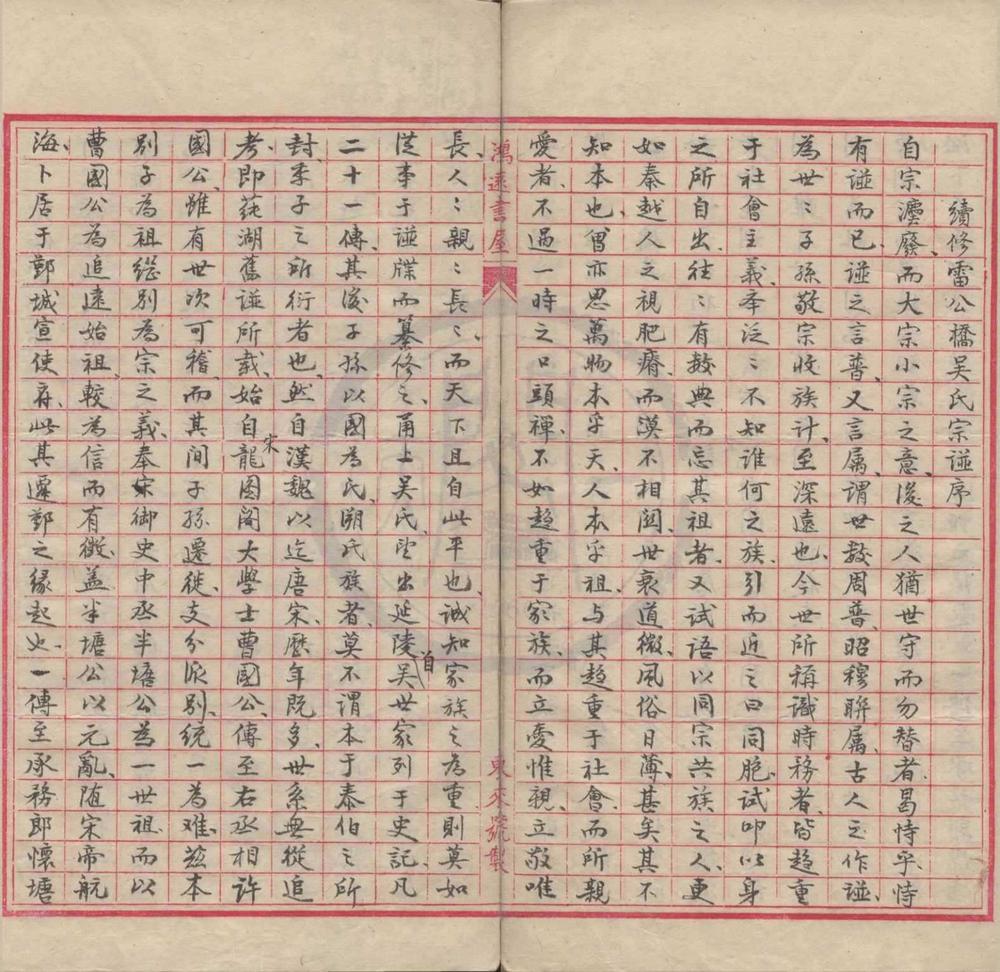 續修雷公橋吳氏宗諩序
自宗灋廢、而大宗小宗之意、後之人猶世守而勿替者、曷恃乎、恃
有諩而已、諩之言普、又言屬、謂世數周普、昭穆聯属、古人之作諩、
為世〻子孫敬宗收族計、至深遠也、今世所稱識時務者、皆趨重
于社會主義、本泛〻不知誰何之族、引而近之曰同胞、試叩以身
之所自出、往〻有数典而忘其祖者、又試語以同宗共族之人、更
如秦越人之視肥瘠、而漠不相関、世衰道微、風俗日薄、甚矣其不
知本也、曾亦思萬物本乎天、人本乎祖、与其趨重于社會、而所親
愛者、不過一時之口頭禪、不如趨重于家族、而立愛惟親、立敬唯
鴻遠書屋
東來號製
長、人〻親〻長〻、而天下且自此平也、誠知家族之為重、則莫如
從事于諩牒而纂修之、甬上吳氏、望出延陵、吳世家列于史記首、凡
二十一傳、其後子孫以國為氏、溯氏族者、莫不謂本于泰伯之所
封、季子之所衍者也、然自漢魏以迄唐宋、歷年既多、世系無從追
考、即莼湖舊諩所載、始自宋龍图阁大學士曹國公、傳至右丞相許
國公、雖有世次可稽、而其间子孫遷徙、支分派别、統一為难、兹本
别子為祖、繼别為宗之義、奉宋御史中丞半塘公為一世祖、而以
曹國公為追遠始祖、較為信而有徵、蓋半塘公以元亂、随宋帝航
海、卜居于鄞城宣使府、此其遷鄞之缘起也、一傳至承務郎懷塘